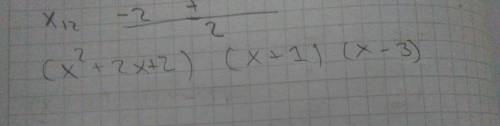 x₁₂ -2 ±
2
(x² + 2x + 2) (x + 1) (x - 3)